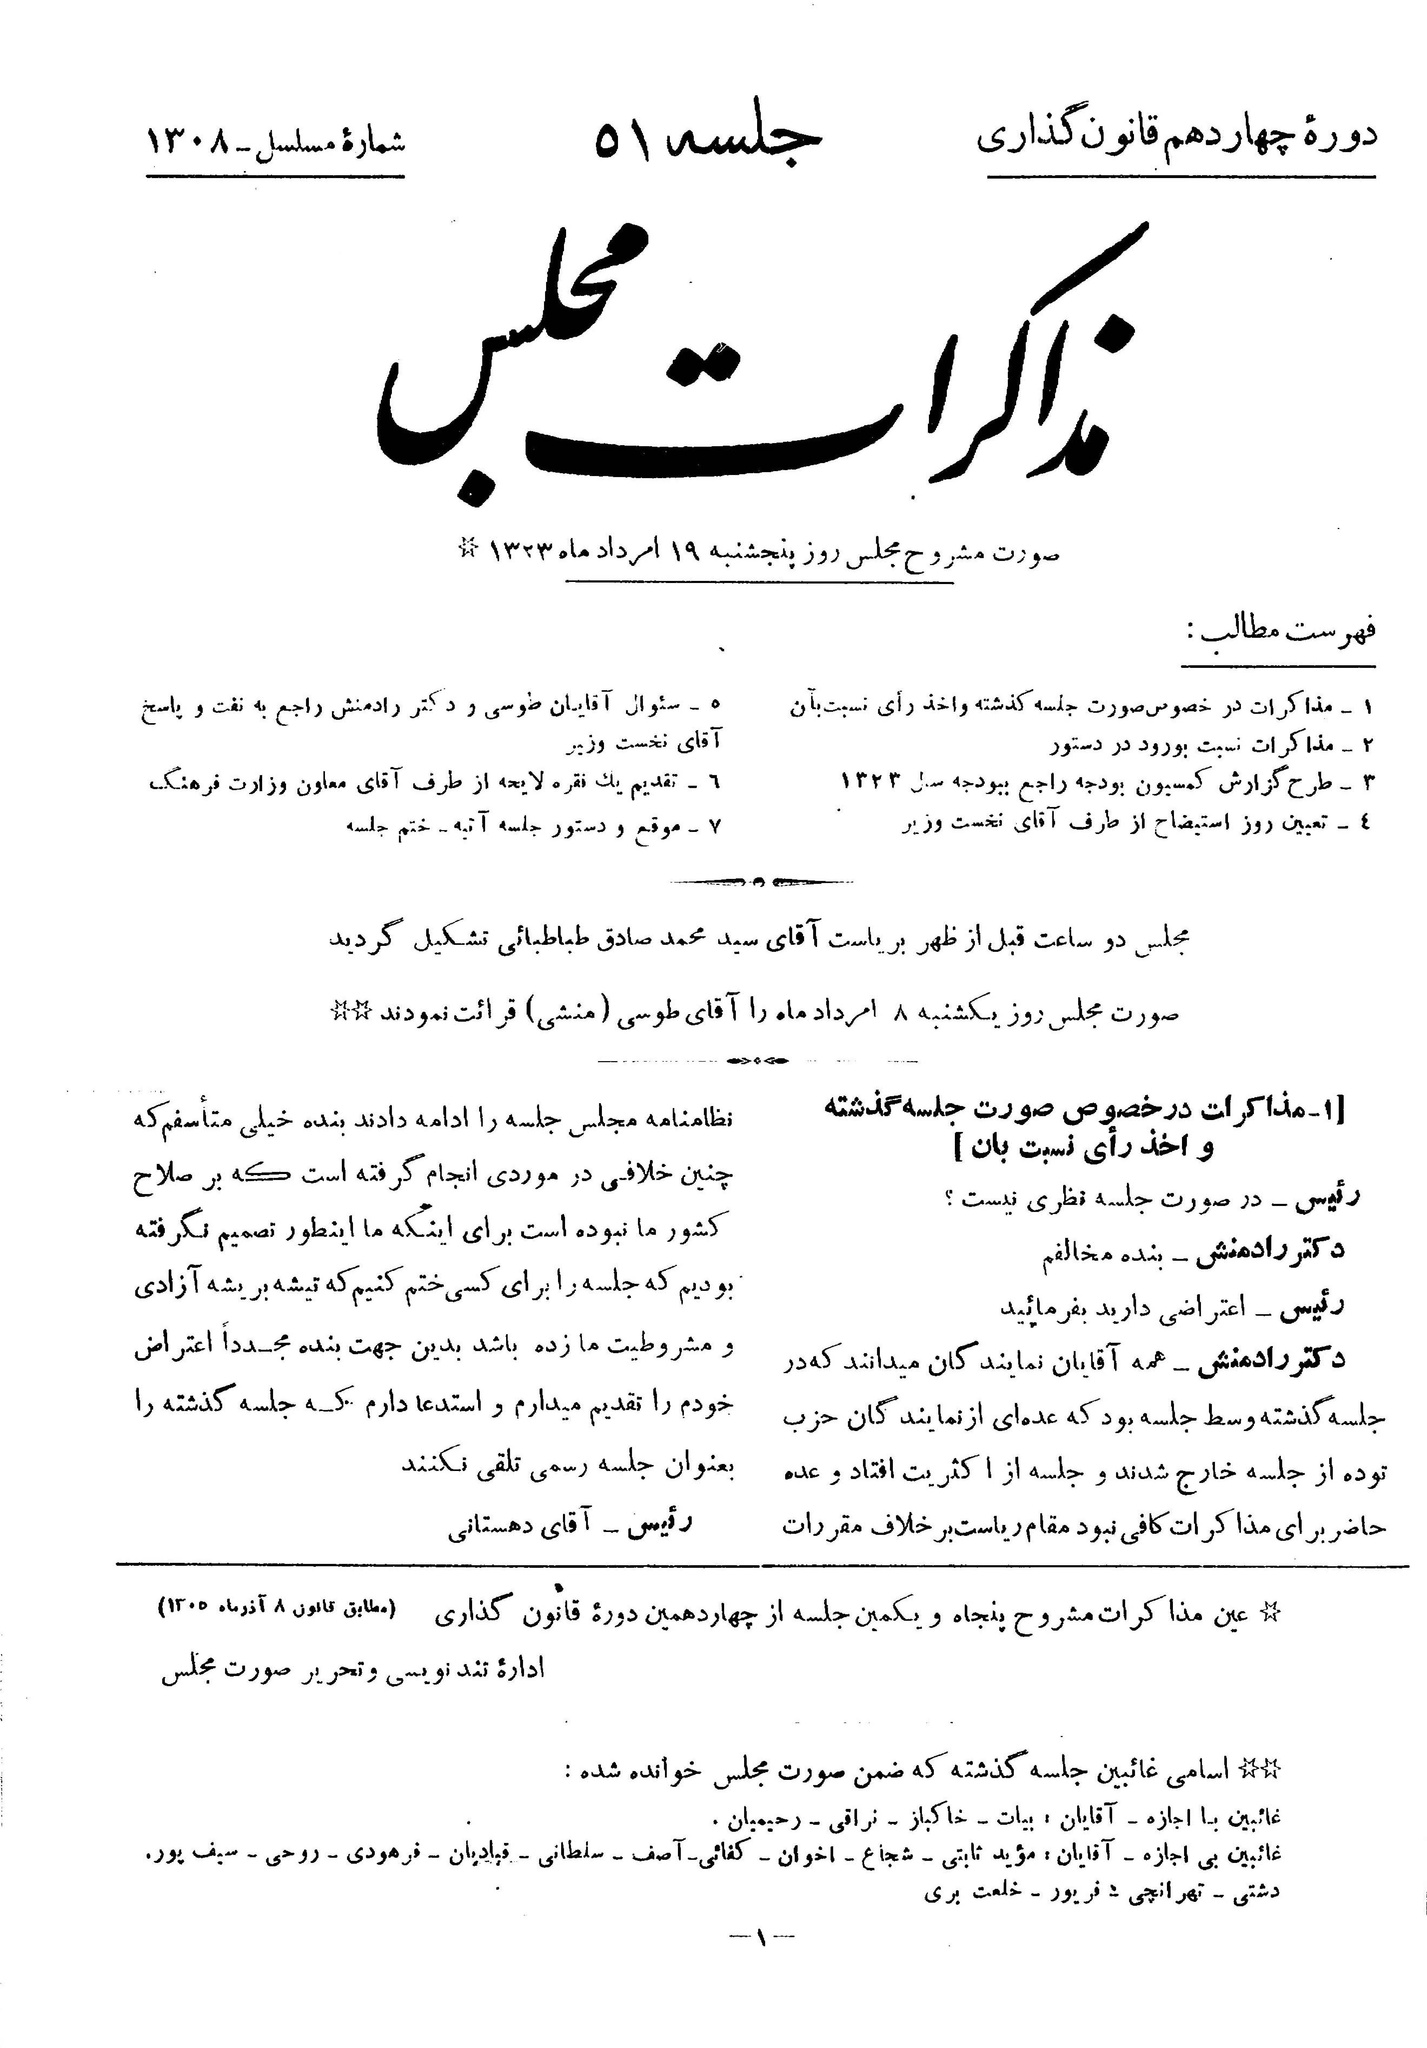 دورهٔ چهاردهم قانون گذاری
جلسه ۵۱
شمارهٔ مسلسل - ۱۳۰۸
مذاکرات مجلس
صورت مشروح مجلس روز پنجشنبه ۱۹ امرداد ماه ۱۳۲۳ ☆
فهرست مطالب :
۱ - مذاکرات در خصوص صورت جلسه گذشته و اخذ رأی نسبت بآن
۲ - مذاکرات نسبت بورود در دستور
۳ - طرح گزارش کمسیون بودجه راجع ببودجه سال ۱۳۲۳
٤ - تعیین روز استیضاح از طرف آقای نخست وزیر
۵ - سئوال آقایان طوسی و دکتر رادمنش راجع به نفت و پاسخ
آقای نخست وزیر
٦ - تقدیم یك فقره لایحه از طرف آقای معاون وزارت فرهنگ
۷ - موقع و دستور جلسه آتیه - ختم جلسه
مجلس دو ساعت قبل از ظهر بریاست آقای سید محمد صادق طباطبائی تشکیل گردید
صورت مجلس روز یکشنبه ۸ امرداد ماه را آقای طوسی (منشی) قرائت نمودند ☆☆
[۱- مذاکرات در خصوص صورت جلسه گذشته
و اخذ رأی نسبت بان ]
رئیس - در صورت جلسه نظری نیست ؟
دکتر رادمنش - بنده مخالفم
رئیس - اعتراضی دارید بفرمائید
دکتر رادمنش - همه آقایان نمایندگان میدانند که در
جلسه گذشته وسط جلسه بود که عده‌ای از نمایندگان حزب
توده از جلسه خارج شدند و جلسه از اکثریت افتاد و عده
حاضر برای مذاکرات کافی نبود مقام ریاست بر خلاف مقررات
نظامنامه مجلس جلسه را ادامه دادند بنده خیلی متأسفم که
چنین خلافی در موردی انجام گرفته است که بر صلاح
کشور ما نبوده است برای اینکه ما اینطور تصمیم نگرفته
بودیم که جلسه را برای کسی ختم کنیم که تیشه بریشه آزادی
و مشروطیت ما زده باشد بدین جهت بنده مجدداً اعتراض
خودم را تقدیم میدارم و استدعا دارم که جلسه گذشته را
بعنوان جلسه رسمی تلقی نکنند
رئیس - آقای دهستانی
☆ عین مذاکرات مشروح پنجاه و یکمین جلسه از چهاردهمین دورهٔ قانون گذاری (مطابق قانون ۸ آذرماه ۱۳۰۵)
ادارهٔ تند نویسی و تحریر صورت مجلس
☆☆ اسامی غائبین جلسه گذشته که ضمن صورت مجلس خوانده شده :
غائبین با اجازه - آقایان : بیات - خاکباز - نراقی - رحیمیان .
غائبین بی اجازه - آقایان : مؤید ثابتی - شجاع - اخوان - کفائی - آصف - سلطانی - قبادیان - فرهودی - روحی - سیف پور.
دشتی - تهرانچی - فریور - خلعت بری
—۱—